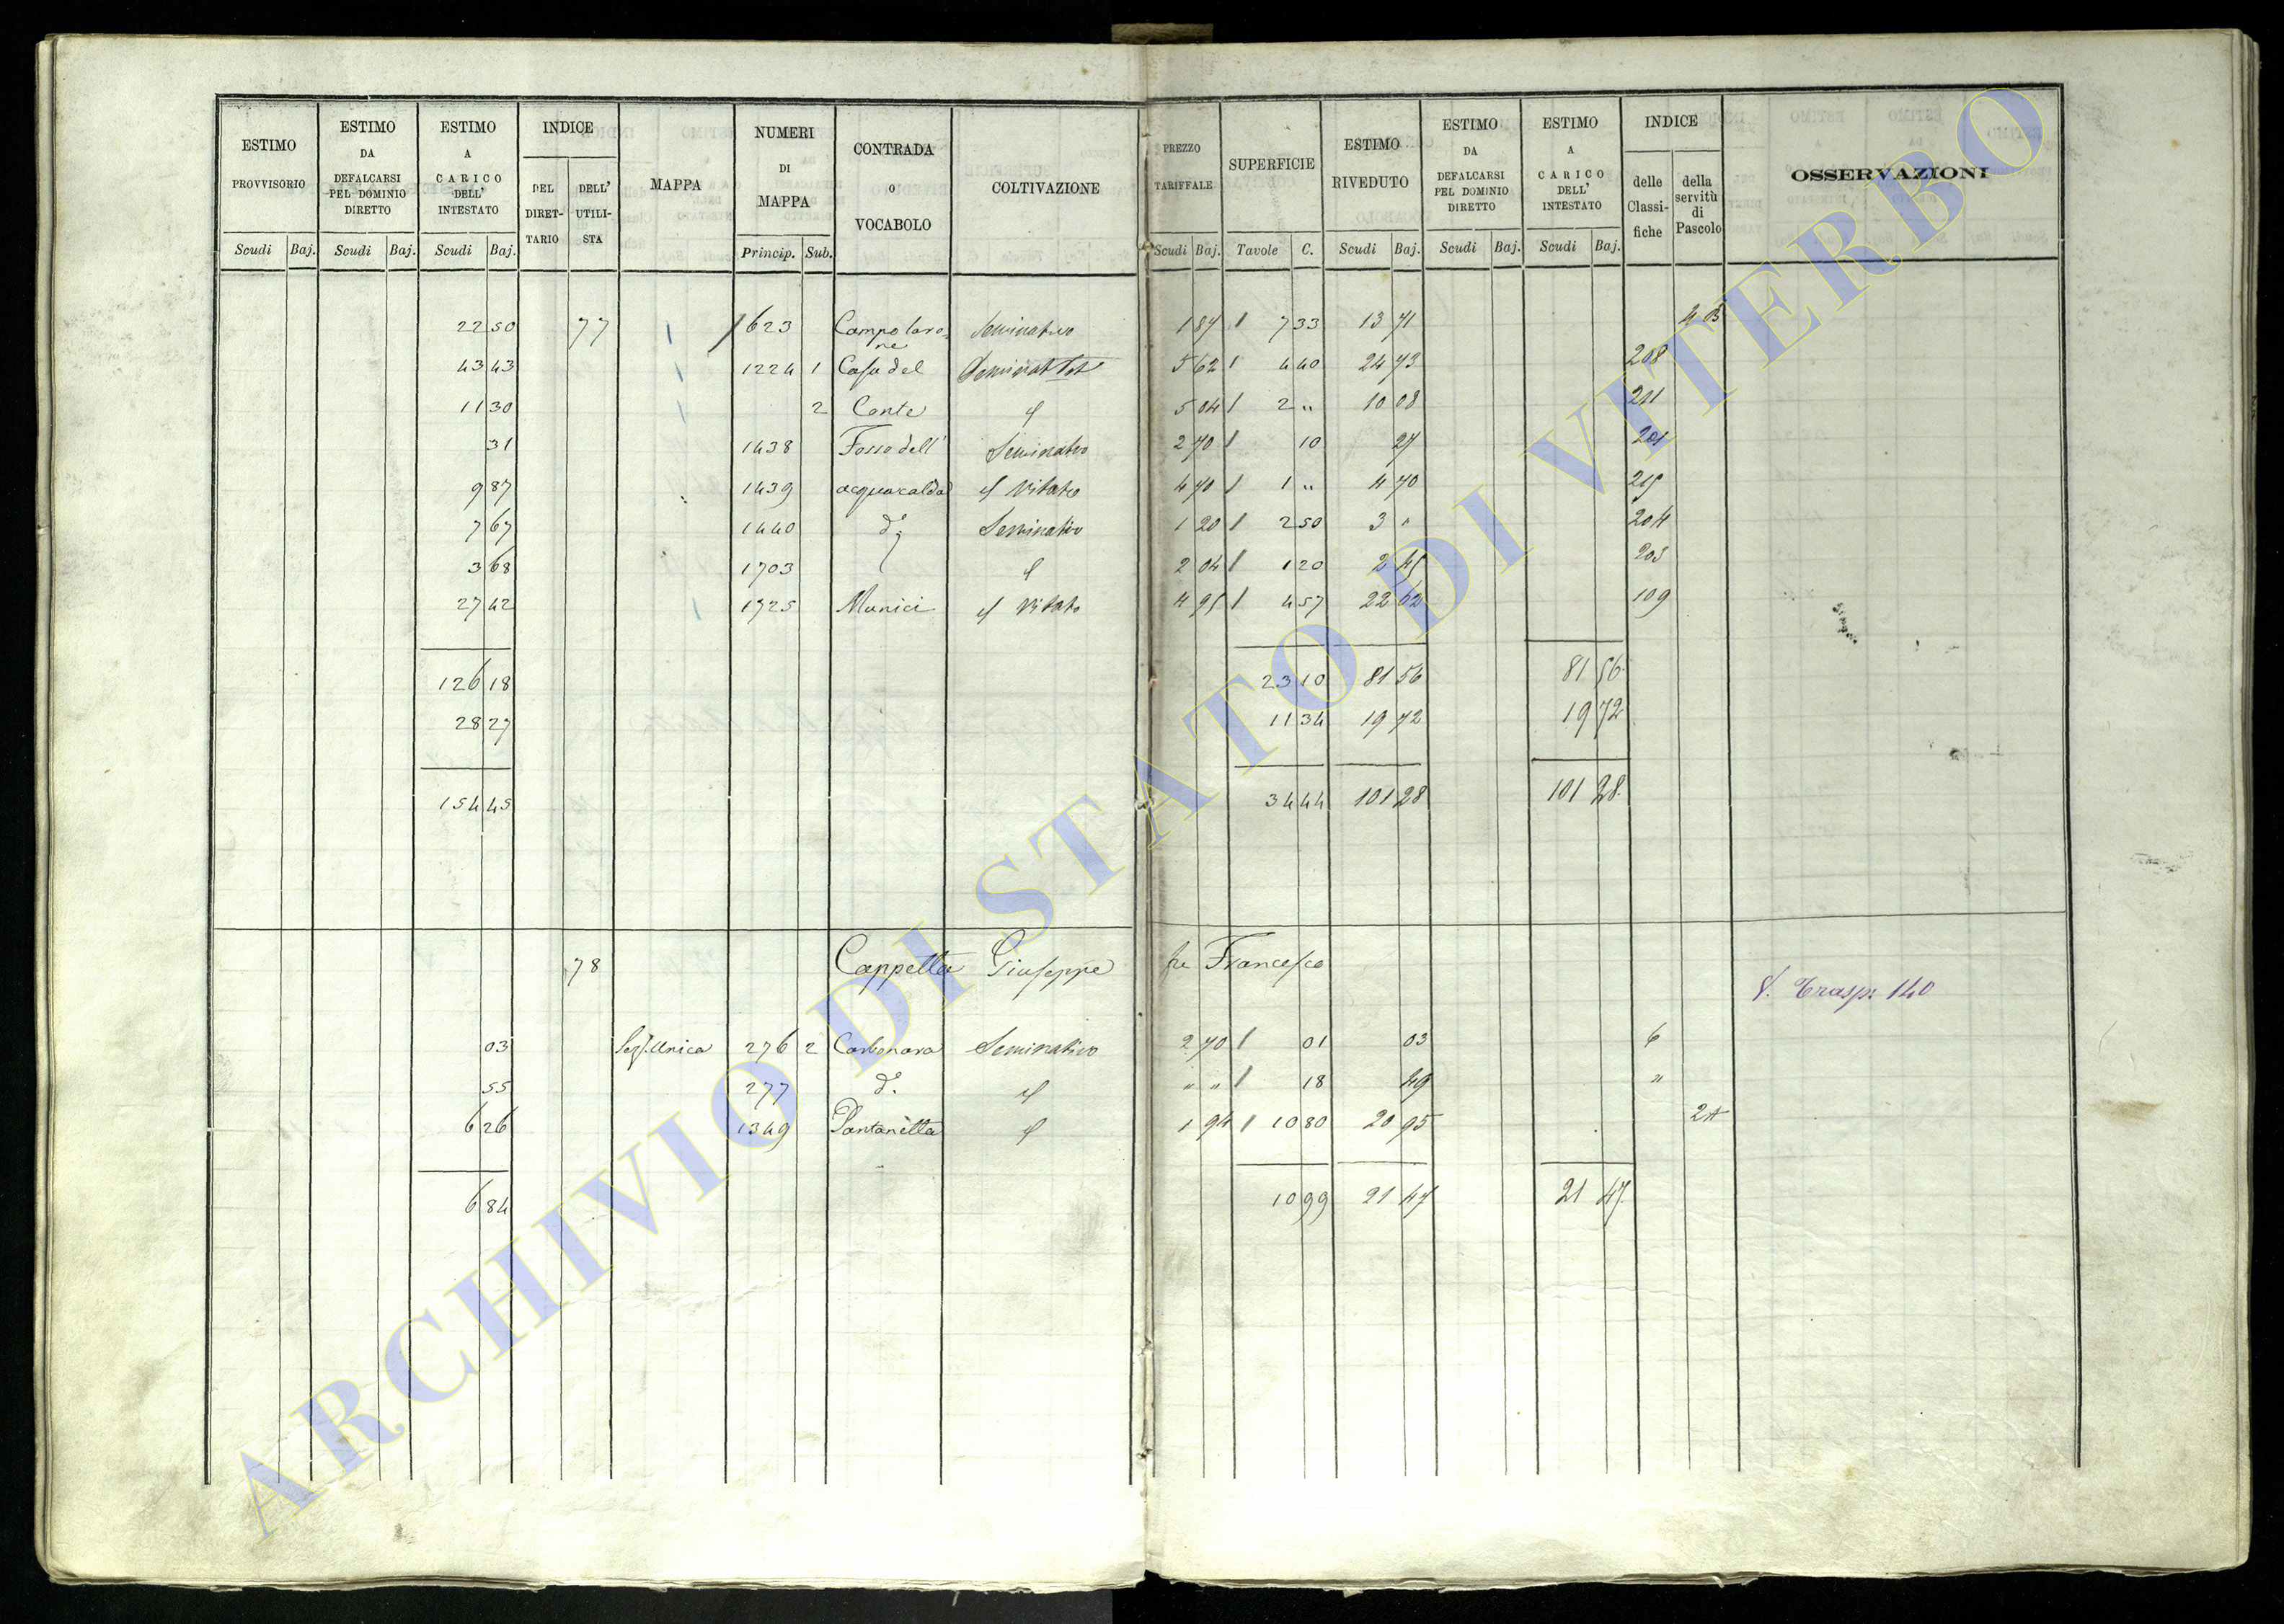 ESTIMO PROVVISORIO Scudi Baj.
ESTIMO DA DEFALCARSI PEL DOMINIO DIRETTO Scudi Baj.
ESTIMO A CARICO DELL' INTESTATO Scudi Baj.
INDICE DEL DIRET-TARIO DELL' UTILI-STA
MAPPA
NUMERI DI MAPPA Princip. Sub.
CONTRADA O VOCABOLO
COLTIVAZIONE
PREZZO TARIFFALE Scudi Baj.
SUPERFICIE Tavole C.
ESTIMO RIVEDUTO Scudi Baj.
ESTIMO DA DEFALCARSI PEL DOMINIO DIRETTO Scudi Baj.
ESTIMO A CARICO DELL' INTESTATO Scudi Baj.
INDICE delle Classi-fiche della servitù di Pascolo
OSSERVAZIONI
22 50 77 623 Seminativo 1 87 7 33 13 71 4 B
43 43 1224 1 Casa del 5 62 4 40 24 73 208
11 30 2 Conte 5 04 2 " 10 08 211
31 1438 Fosso dell' Seminativo 2 70 10 27 201
9 87 1439 acquacalda Vitato 4 70 1 " 4 70 215
7 67 1440 d° Seminativo 1 20 2 50 3 " 204
3 68 1703 2 04 1 20 2 45 203
27 42 1725 Munici Vitato 4 95 4 57 22 62 109
126 18 23 10 81 56 81 56
28 27 11 34 19 72 19 72
154 45 34 44 101 28 101 28
78 Cappetta Giuseppe fu Francesco
V. Trasp: 140
03 Sez. Unica 276 2 Carbonara Seminativo 2 70 01 03 6
55 277 d° " " 18 49 "
6 26 1349 Pantanella 1 94 10 80 20 95 2 A
6 84 10 99 21 47 21 47
ARCHIVIO DI STATO DI VITERBO